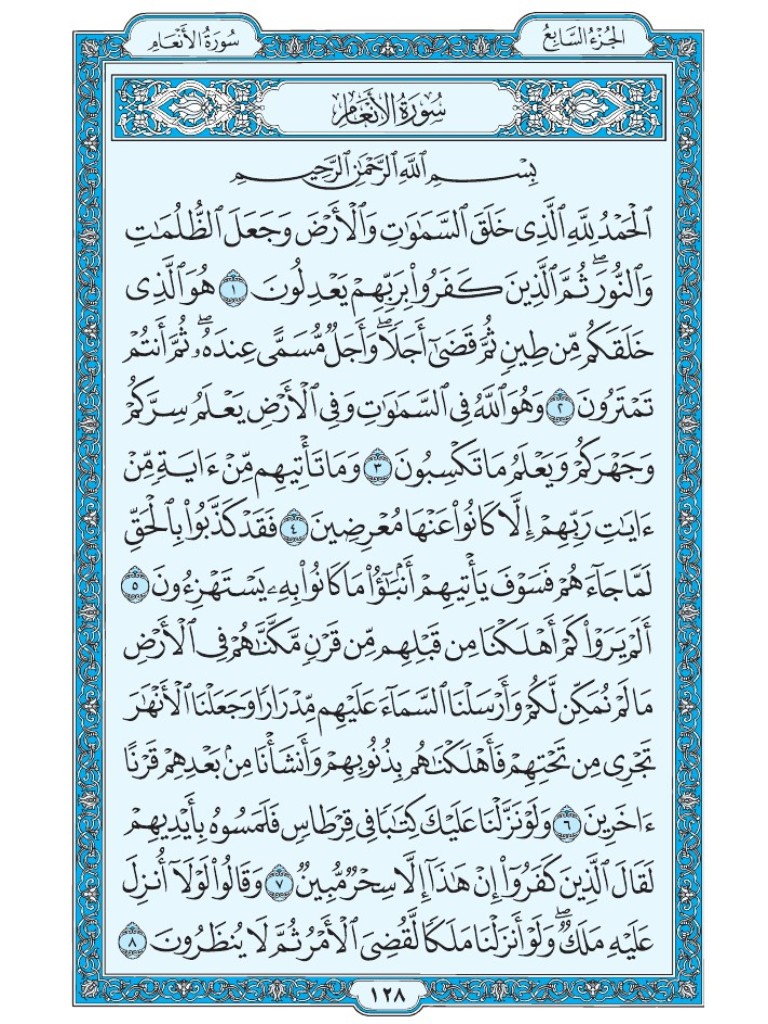 الجزء السابع
سورة الأنعام
سُورَةُ الأَنْعَامِ
بِسْمِ ٱللَّهِ ٱلرَّحْمَٰنِ ٱلرَّحِيمِ
ٱلْحَمْدُ لِلَّهِ ٱلَّذِى خَلَقَ ٱلسَّمَٰوَٰتِ وَٱلْأَرْضَ وَجَعَلَ ٱلظُّلُمَٰتِ
وَٱلنُّورَ ۖ ثُمَّ ٱلَّذِينَ كَفَرُوا۟ بِرَبِّهِمْ يَعْدِلُونَ ١ هُوَ ٱلَّذِى
خَلَقَكُم مِّن طِينٍ ثُمَّ قَضَىٰٓ أَجَلًا ۖ وَأَجَلٌ مُّسَمًّى عِندَهُۥ ۖ ثُمَّ أَنتُمْ
تَمْتَرُونَ ٢ وَهُوَ ٱللَّهُ فِى ٱلسَّمَٰوَٰتِ وَفِى ٱلْأَرْضِ يَعْلَمُ سِرَّكُمْ
وَجَهْرَكُمْ وَيَعْلَمُ مَا تَكْسِبُونَ ٣ وَمَا تَأْتِيهِم مِّنْ ءَايَةٍ مِّنْ
ءَايَٰتِ رَبِّهِمْ إِلَّا كَانُوا۟ عَنْهَا مُعْرِضِينَ ٤ فَقَدْ كَذَّبُوا۟ بِٱلْحَقِّ
لَمَّا جَآءَهُمْ فَسَوْفَ يَأْتِيهِمْ أَنۢبَٰٓؤُا۟ مَا كَانُوا۟ بِهِۦ يَسْتَهْزِءُونَ ٥
أَلَمْ يَرَوْا۟ كَمْ أَهْلَكْنَا مِن قَبْلِهِم مِّن قَرْنٍ مَّكَّنَّٰهُمْ فِى ٱلْأَرْضِ
مَا لَمْ نُمَكِّن لَّكُمْ وَأَرْسَلْنَا ٱلسَّمَآءَ عَلَيْهِم مِّدْرَارًا وَجَعَلْنَا ٱلْأَنْهَٰرَ
تَجْرِى مِن تَحْتِهِمْ فَأَهْلَكْنَٰهُم بِذُنُوبِهِمْ وَأَنشَأْنَا مِنۢ بَعْدِهِمْ قَرْنًا
ءَاخَرِينَ ٦ وَلَوْ نَزَّلْنَا عَلَيْكَ كِتَٰبًا فِى قِرْطَاسٍ فَلَمَسُوهُ بِأَيْدِيهِمْ
لَقَالَ ٱلَّذِينَ كَفَرُوٓا۟ إِنْ هَٰذَآ إِلَّا سِحْرٌ مُّبِينٌ ٧ وَقَالُوا۟ لَوْلَآ أُنزِلَ
عَلَيْهِ مَلَكٌ ۖ وَلَوْ أَنزَلْنَا مَلَكًا لَّقُضِىَ ٱلْأَمْرُ ثُمَّ لَا يُنظَرُونَ ٨
١٢٨